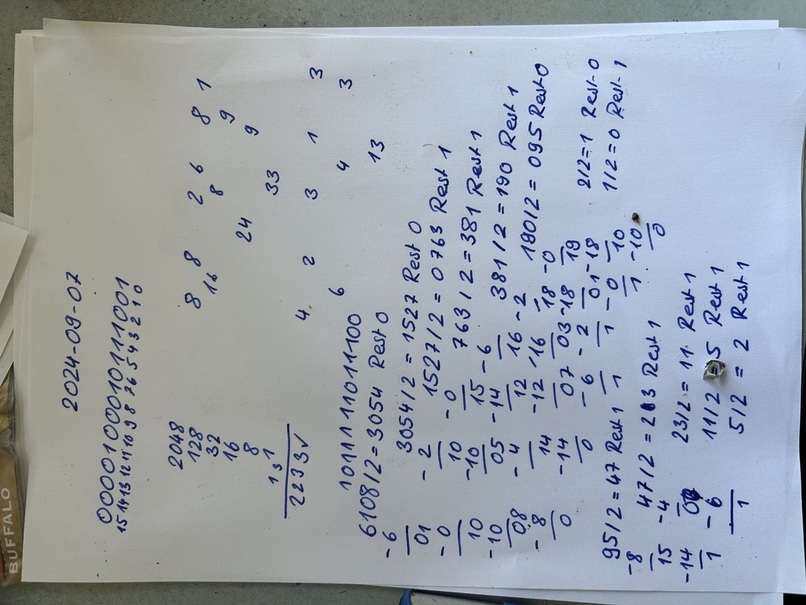 BUFFALO
2024-09-07
0000100010111001
15 14 13 12 11 10 9 8 7 6 5 4 3 2 1 0
2048
128
32
16
8
1 3 1
2233✓
8 8 2 6 8 1
16 8 9
24 9
33
4 2 3 1 3
6 4 3
13
1011111011100
6108/2 = 3054 Rest 0
-6
01
-0
10
-10
08
-8
0
3054/2 = 1527 Rest 0
-2
10
-10
05
-4
14
-14
0
1527/2 = 0763 Rest 1
-0
15
-14
12
-12
07
-6
1
763/2 = 381 Rest 1
-6
16
-16
03
-2
1
381/2 = 190 Rest 1
-2
18
-18
01
-0
1
190/2 = 095 Rest 0
-0
19
-18
10
-10
0
95/2 = 47 Rest 1
-8
15
-14
1
47/2 = 23 Rest 1
-4
07
-6
1
23/2 = 11 Rest 1
11/2 = 5 Rest 1
5/2 = 2 Rest 1
2/2 = 1 Rest 0
1/2 = 0 Rest 1